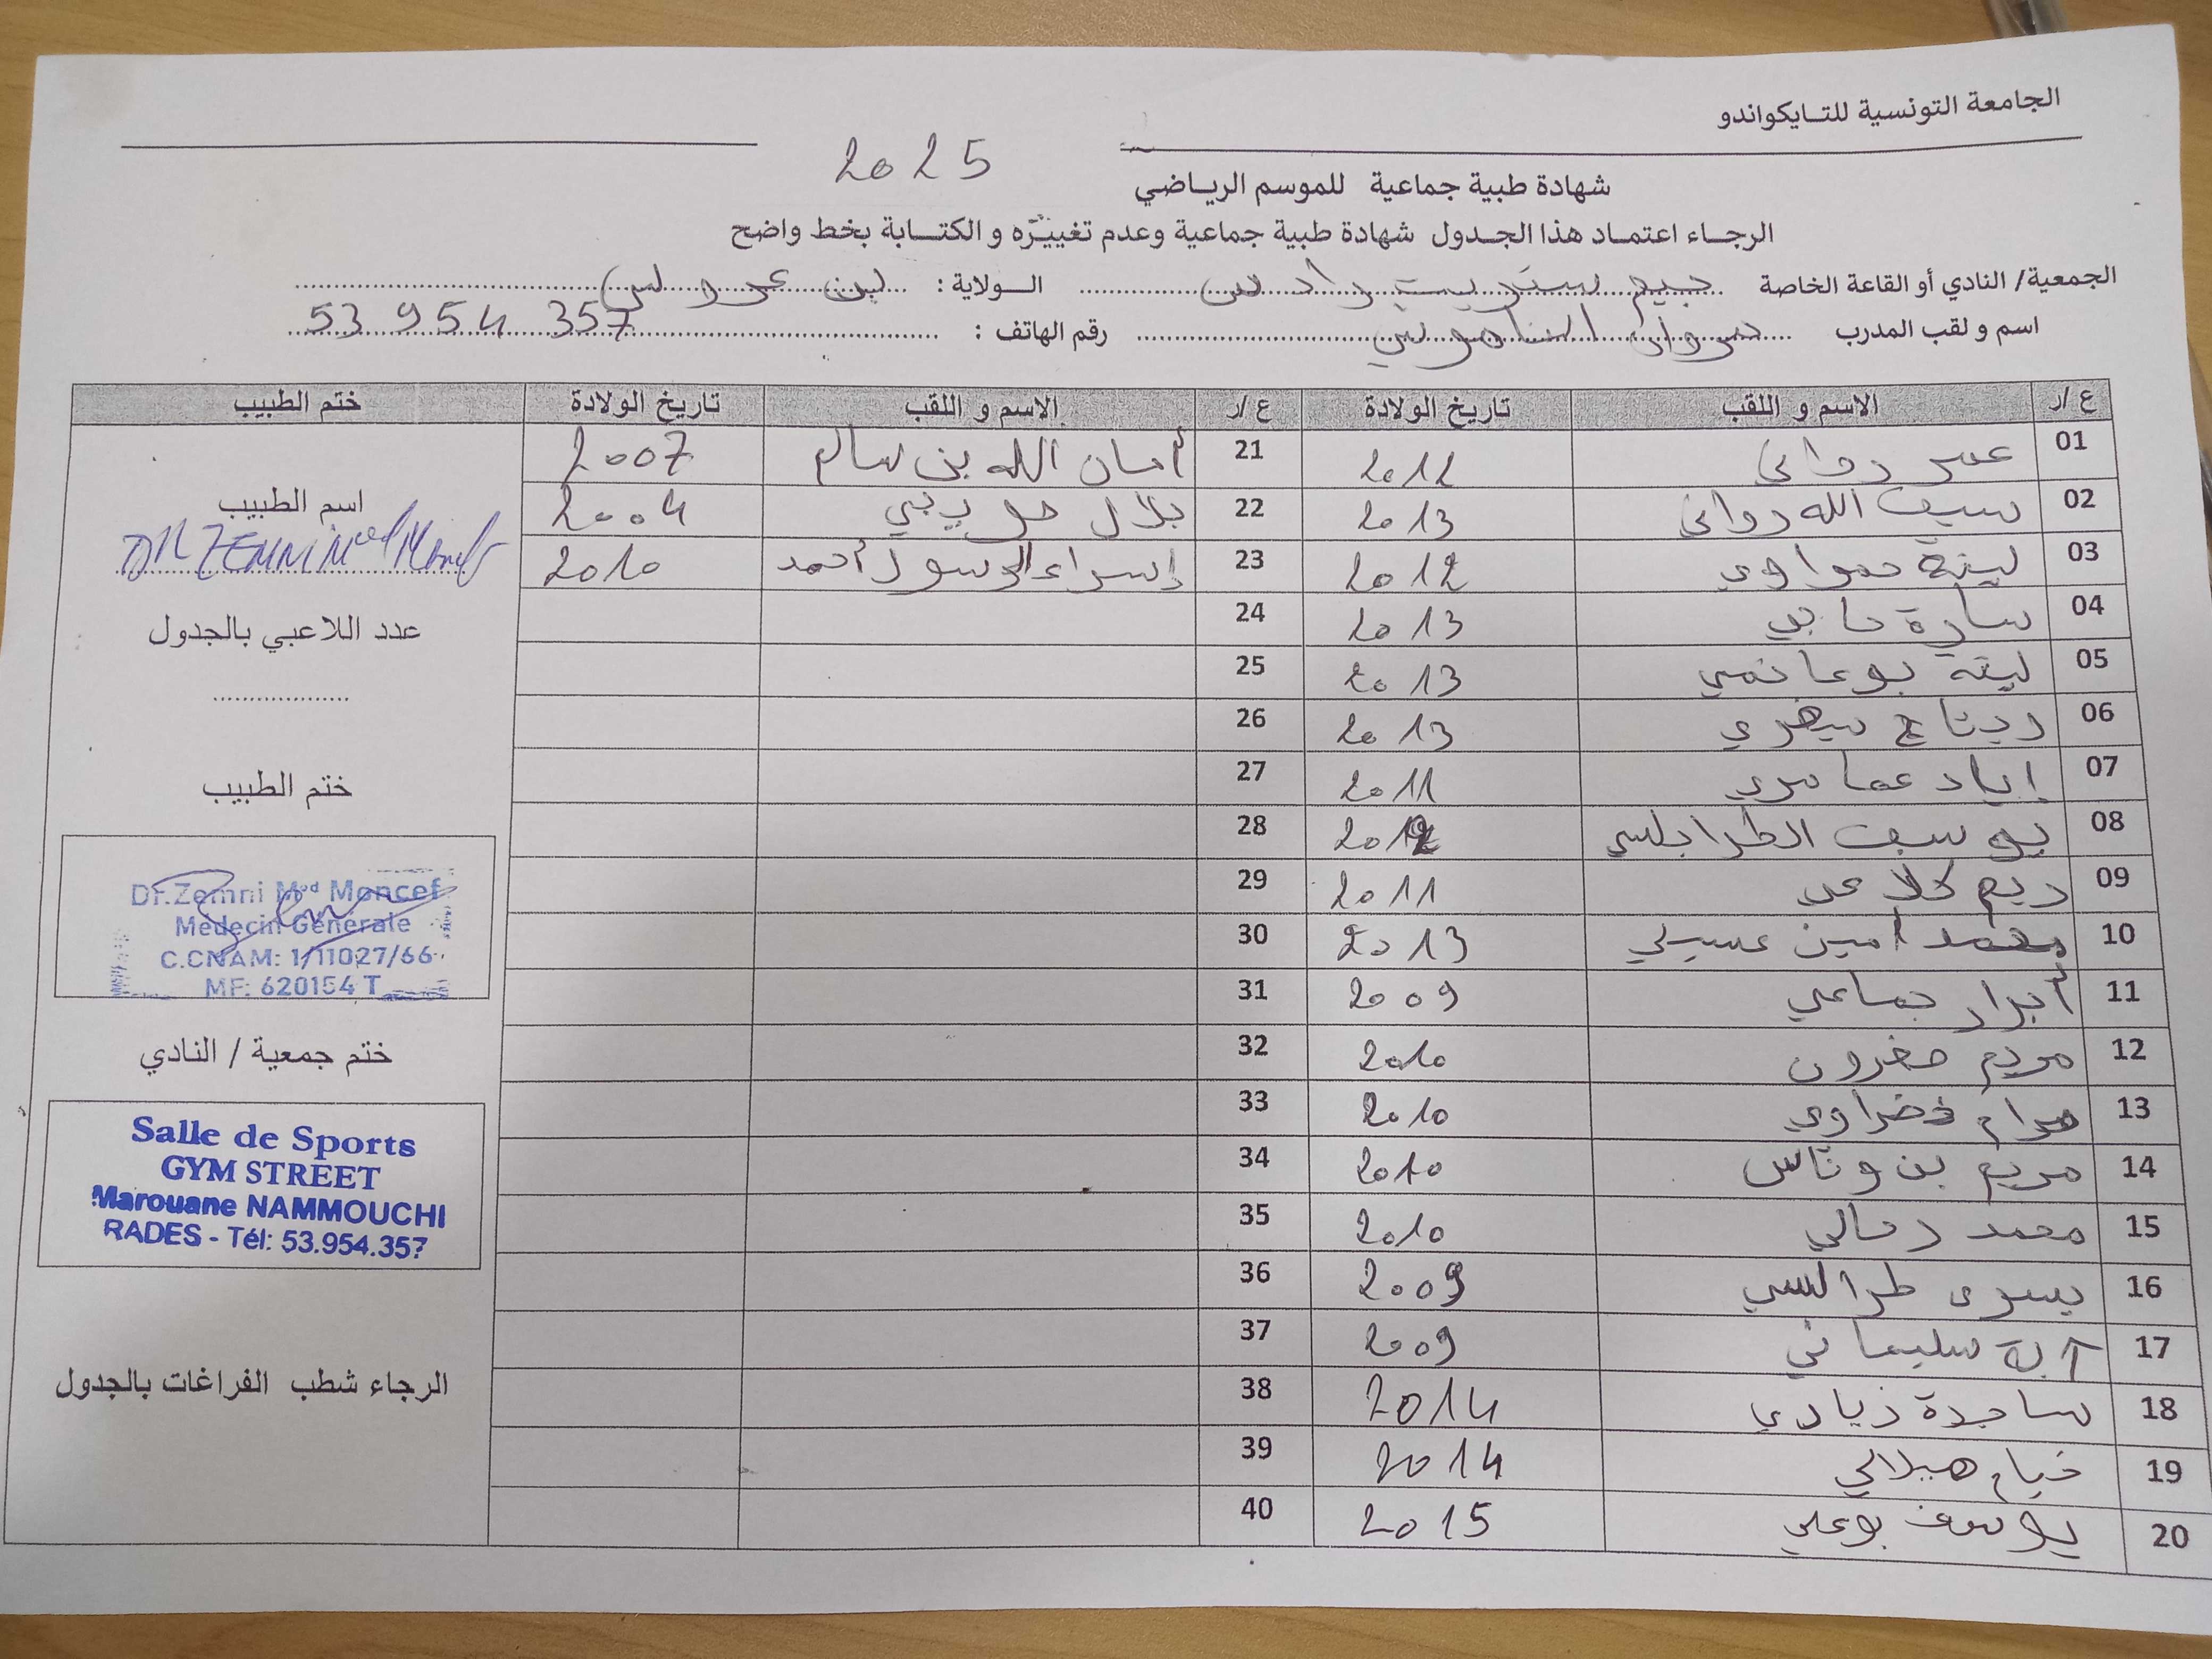 الجامعة التونسية للتـايكواندو
شهادة طبية جماعية للموسم الريـاضي 2025
الرجـاء اعتمـاد هذا الجـدول شهادة طبية جماعية وعدم تغييـره و الكتـابة بخط واضح
الجمعية/ النادي أو القاعة الخاصة جيم ستريت رادس الـولاية : بن عروس
اسم و لقب المدرب مروان النموشي رقم الهاتف : 53 954 357
ع /ر الاسم و اللقب تاريخ الولادة ع /ر الاسم و اللقب تاريخ الولادة ختم الطبيب
01 عمر 2012 21 أمان الله بن سالم 2007
02 سيف الله 2013 22 بلال 2004
03 لينة 2012 23 إسراء أحمد 2010
04 سارة 2013 24
05 لينة بوغانمي 2013 25
06 2013 26
07 إياد عمامري 2011 27
08 يوسف الطرابلسي 2012 28
09 ريم كلاعي 2011 29
10 محمد امين عسيلي 2013 30
11 أبرار جماعي 2009 31
12 مريم مغرون 2010 32
13 مرام خضراوي 2010 33
14 مريم بن وناس 2010 34
15 محمد رحالي 2010 35
16 يسرى طرابلسي 2009 36
17 آية سليماني 2009 37
18 ساجدة زيادي 2014 38
19 خيام هيلالي 2014 39
20 يوسف بوعلي 2015 40
اسم الطبيب
DR ZEMNI Med Moncef
عدد اللاعبي بالجدول
ختم الطبيب
Dr.Zemni Med Moncef
Médecin Générale
C.CNAM: 1/11027/66
MF: 620154 T
ختم جمعية / النادي
Salle de Sports
GYM STREET
Marouane NAMMOUCHI
RADES - Tél: 53.954.357
الرجاء شطب الفراغات بالجدول